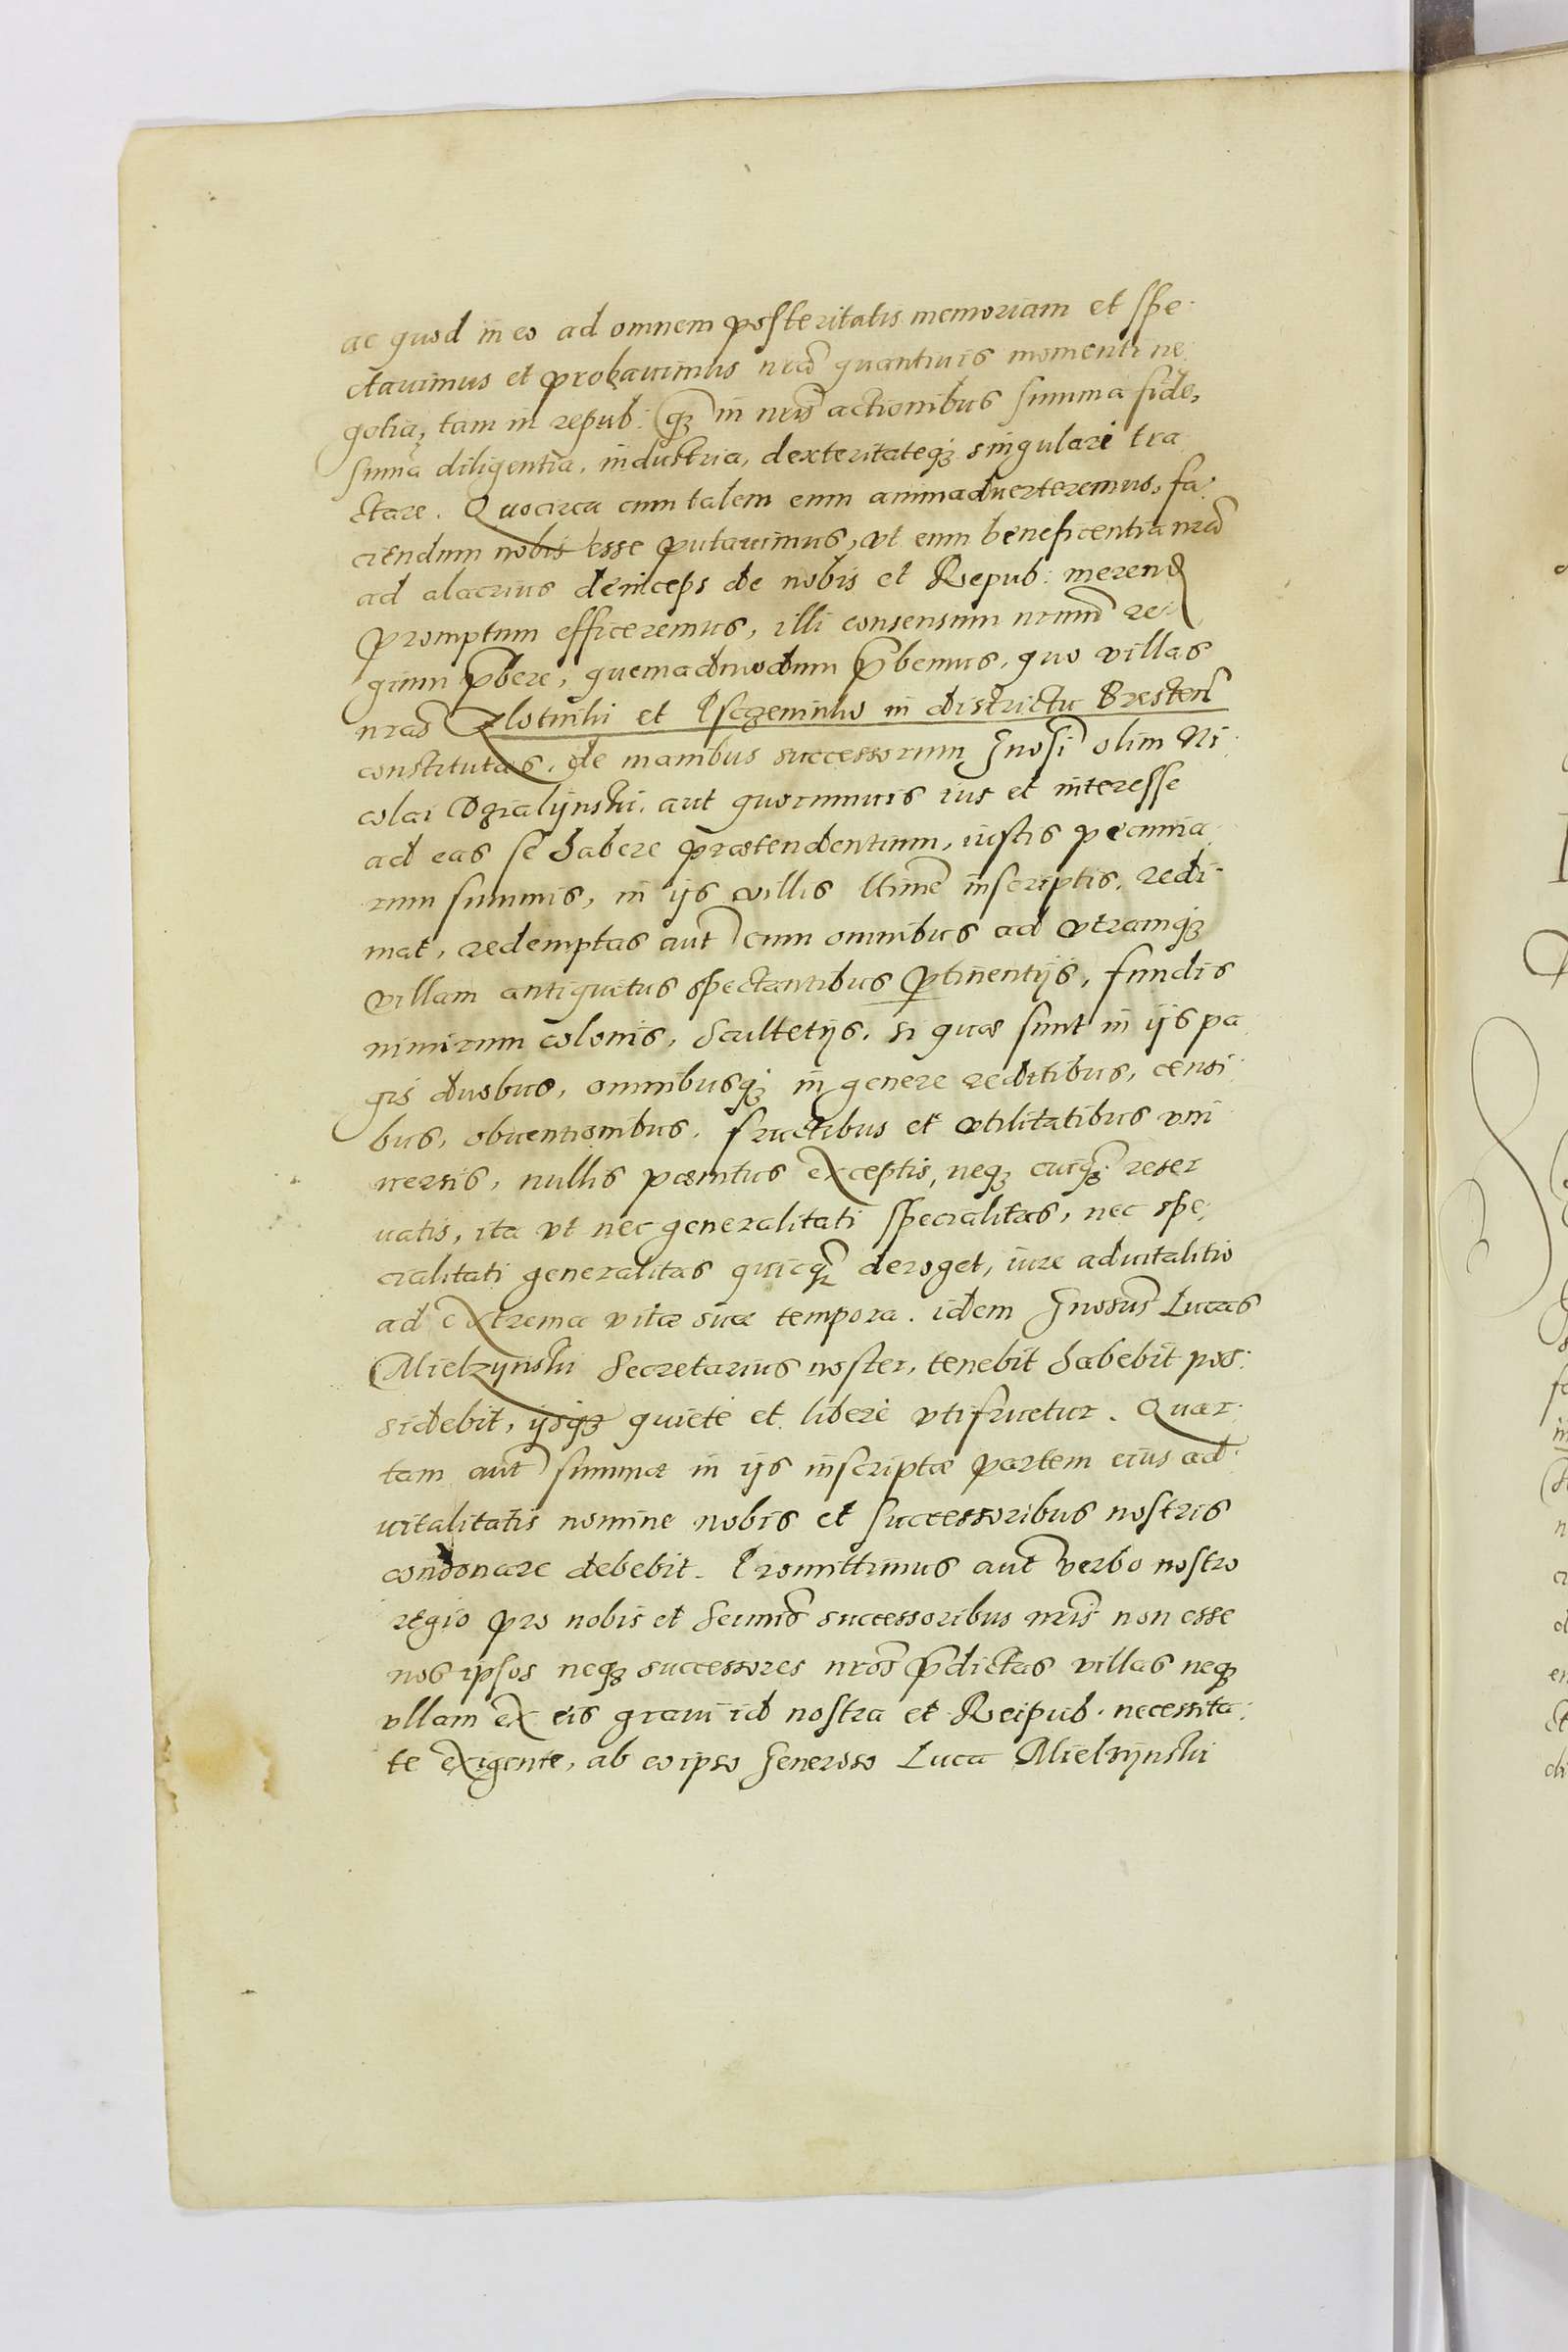 ac quod in eo ad omnem posteritatis memoriam et spe
ctauimus et probauimus nrã quantiuis momenti ne
gotia, tam in repub: qz in nris actionibus summa fide,
sum̃a diligentia, industria, dexteritateqz singulari tra
ctare. Quocirca cum talem eum animaduerteremus, fa
ciendum nobis esse putauimus, vt eum beneficentia nrã
ad alacrius deinceps de nobis et Repub: merend
promptum efficeremus, illi consensum nrum re
gium p̃bere, quemadmodum p̃bemus, quo villas
nras Zlotniki et in districtu Bresten̄
constitutas, de manibus successorum Gnosi olim Ni
colai Dzialijnski, aut quorumuis ius et interesse
ad eas se habere prætendentium, iustis pecunia
rum summis, in ijs villis ltime inscriptis, redi
mat, redemptas aut̃ cum omnibus ad vtramqz
villam antiquitus spectantibus ptinentijs, fundis
nimirum colonis, Scultetijs, si quæ sunt in ijs pa
gis duobus, omnibusqz in genere reditibus, censi
bus, obuentionibus, fructibus et vtilitatibus vni
uersis, nullis pœnitus exceptis, neqz cuiqz reser
uatis, ita vt nec generalitati specialitas, nec spe
cialitati generalitas quicqz deroget, iure aduitalitio
ad extrema vitæ suæ tempora. idem Gnosus Lucas
Mielzijnski Secretarius noster, tenebit habebit pos:
sidebit, ijsqz quietè et liberè vtifruetur. Quar:
tam aut̃ summæ in ijs inscriptæ partem eius ad
uitalitatis nomine nobis et successoribus nostris
condonare debebit. Promittimus aut̃ verbo nostro
regio pro nobis et Serm̃is successoribus nris non esse
nos ipsos neqz successores nros p̃dictas villas neqz
vllam ex eis graui id nostra et Reipub. necessita:
te exigente, ab eo ipso Generoso Luca Mielzijnski